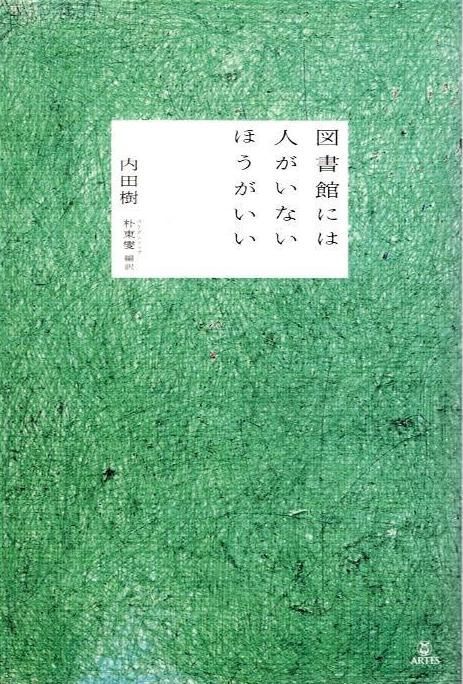 図書館には
人がいない
ほうがいい
内田樹
朴東燮 編訳
ARTES